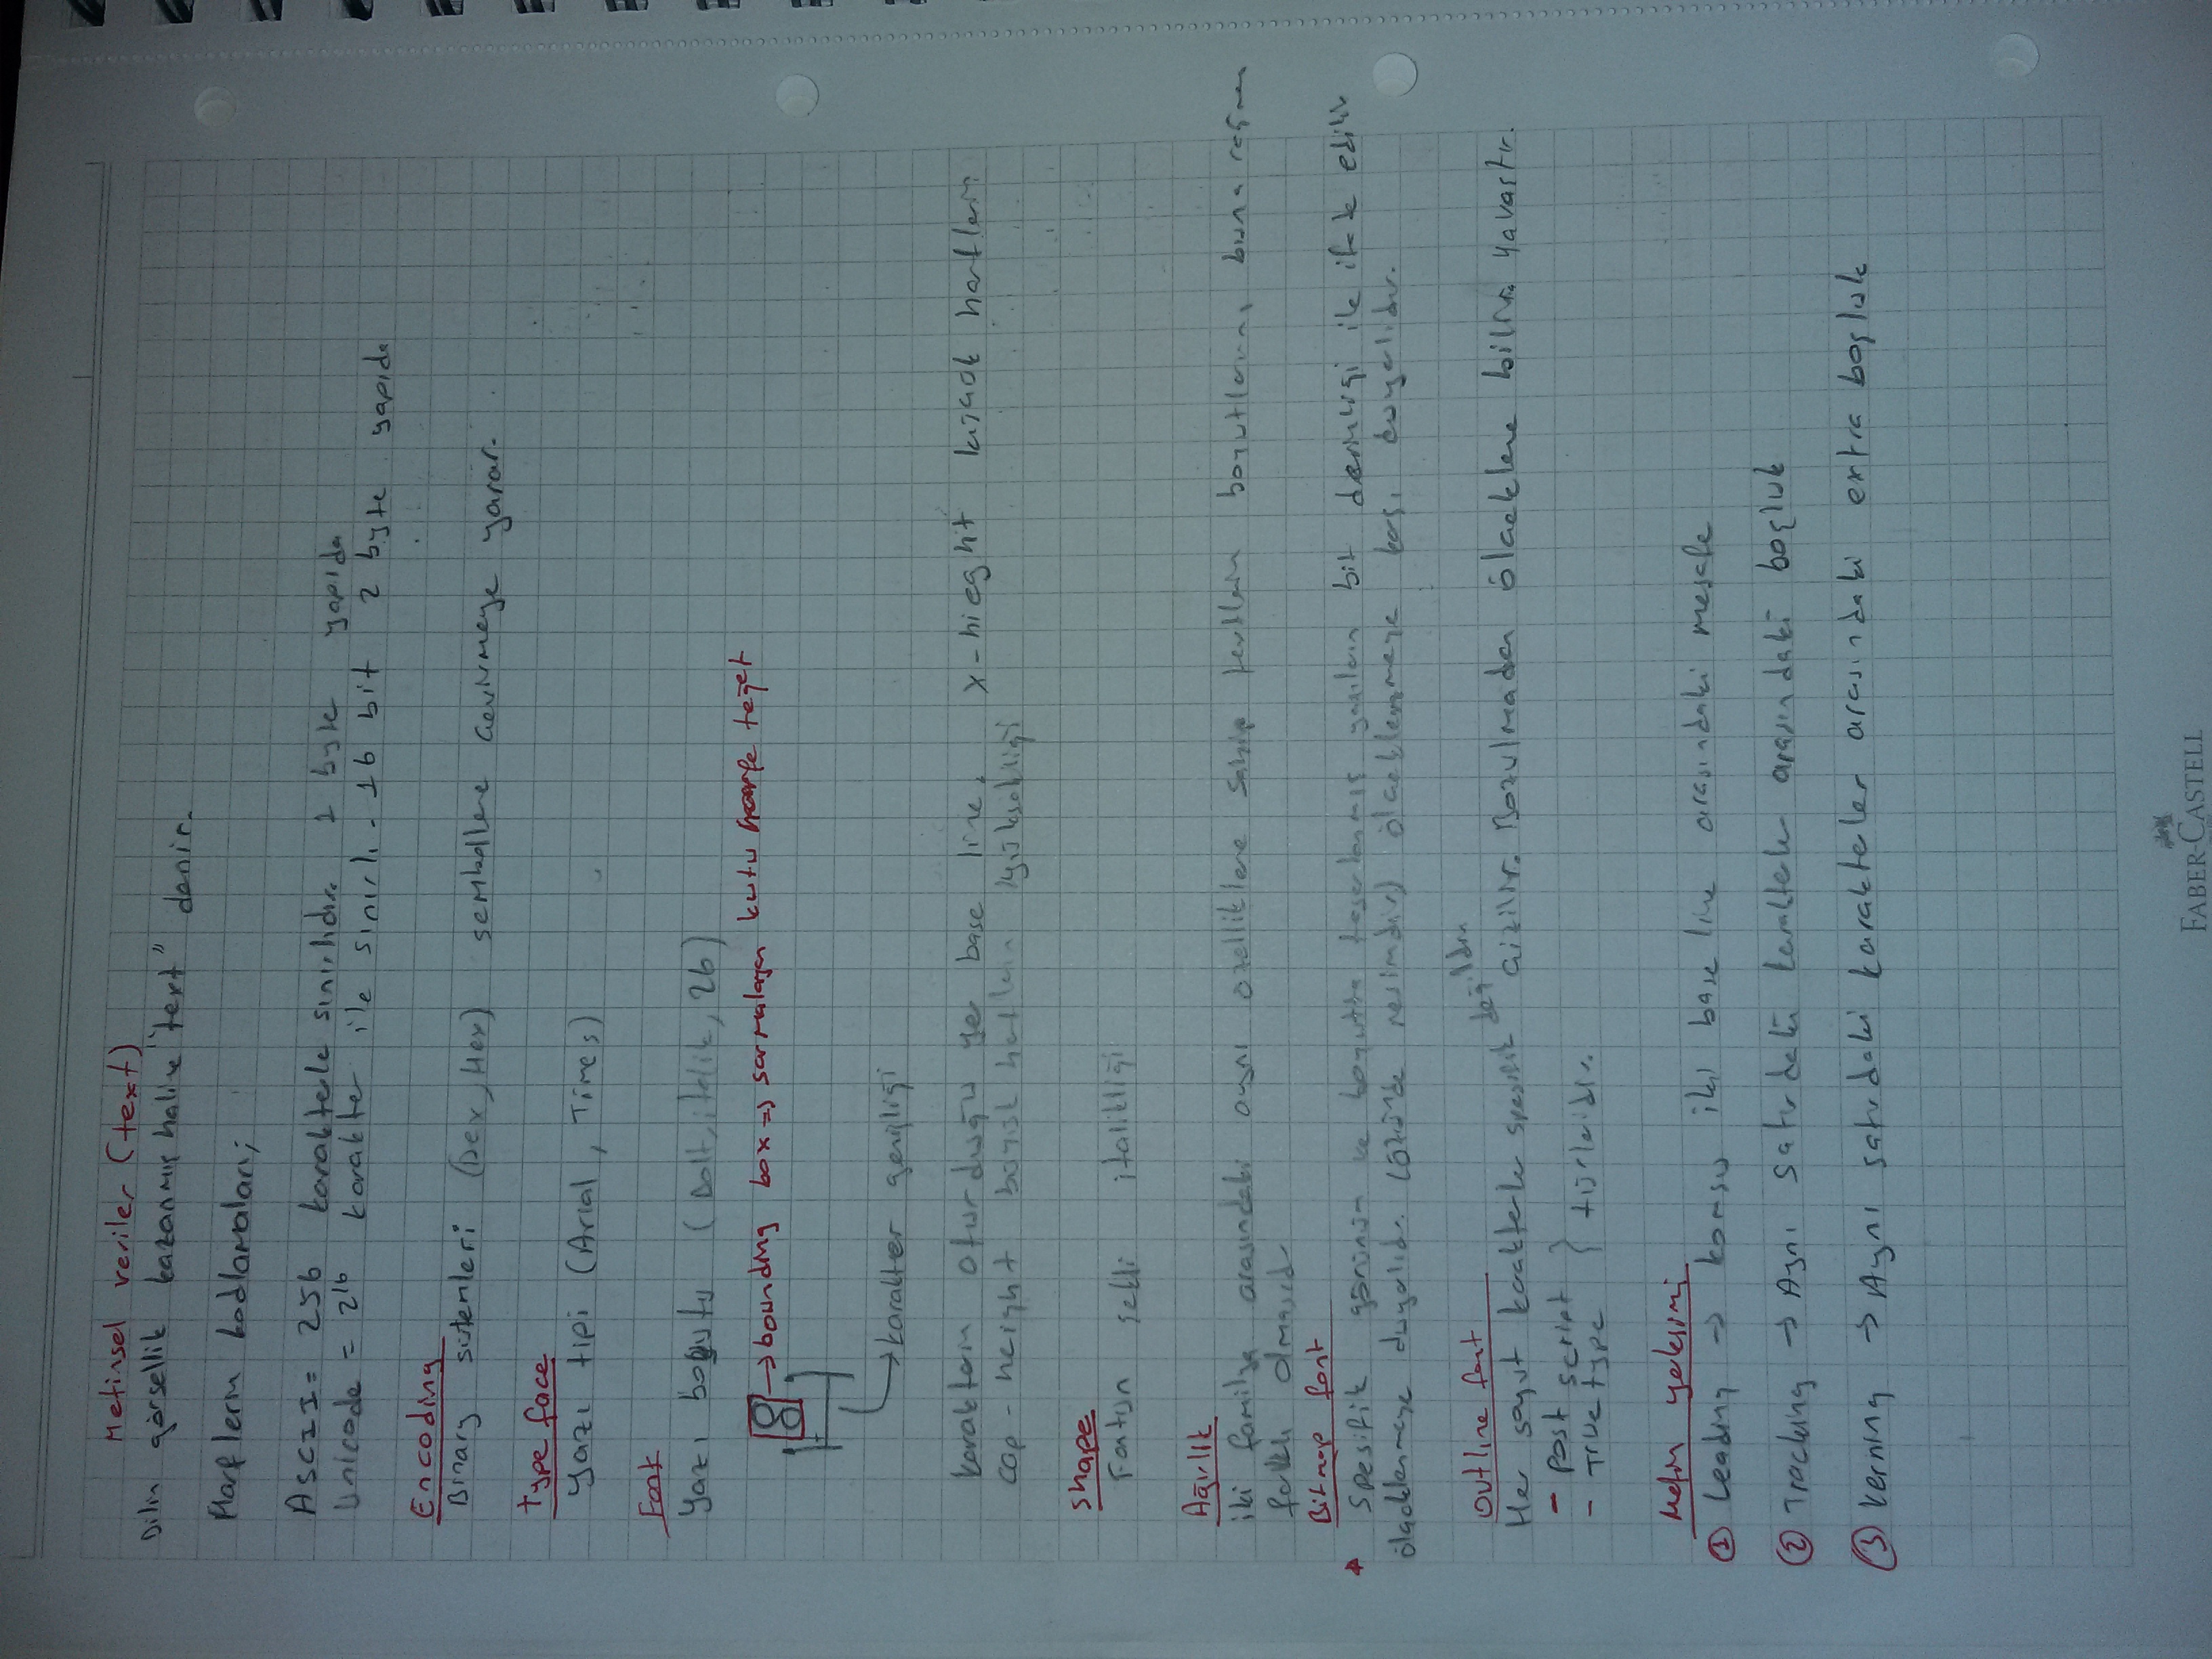 Metinsel veriler (text)
Dilin görsellik kazanmış haline "text" denir.
Harflerin kodlamaları;
ASCII = 256 karakterle sınırlıdır. 1 byte yapıda
Unicode = 2^16 karakter ile sınırlı. 16 bit 2 byte yapıda
Encoding
Binary sistemleri (Dex, Hex) sembollere çevirmeye yarar.
Type face
Yazı tipi (Arial, Times)
Font
Yazı boyutu (Bolt, italik, 26)
→ bounding box => sarmalayan kutu harfe teğet
→ karakter genişliği
karakterin oturduğu yer base line. x-hieght küçük harflerin
cap-height büyük harflerin yüksekliği
Shape
Fontun şekli italikliği
Ağırlık
iki familya arasındaki aynı özelliklere sahip fontların boyutlarının buna rağmen
farklı olmasıdır
Bitmap font
Spesifik görünüm ve boyutta tasarlanmış yazıların bit derinliği ile ifade edilir
ölçeklenmeye duyarlıdır. (özünde resimdir) ölçeklenmeye karşı duyarlıdır.
Outline font
değildir
Her soyut karakterler spesifik çizilir. Bozulmadan ölçeklene bilir. Yavaştır.
- Post script
- True type } türleridir.
Metin
① Leading → komşu iki base line arasındaki mesafe
② Tracking → Aynı satırdaki karakterler arasındaki boşluk
③ Kerning → Aynı satırdaki karakterler arasındaki extra boşluk
FABER-CASTELL